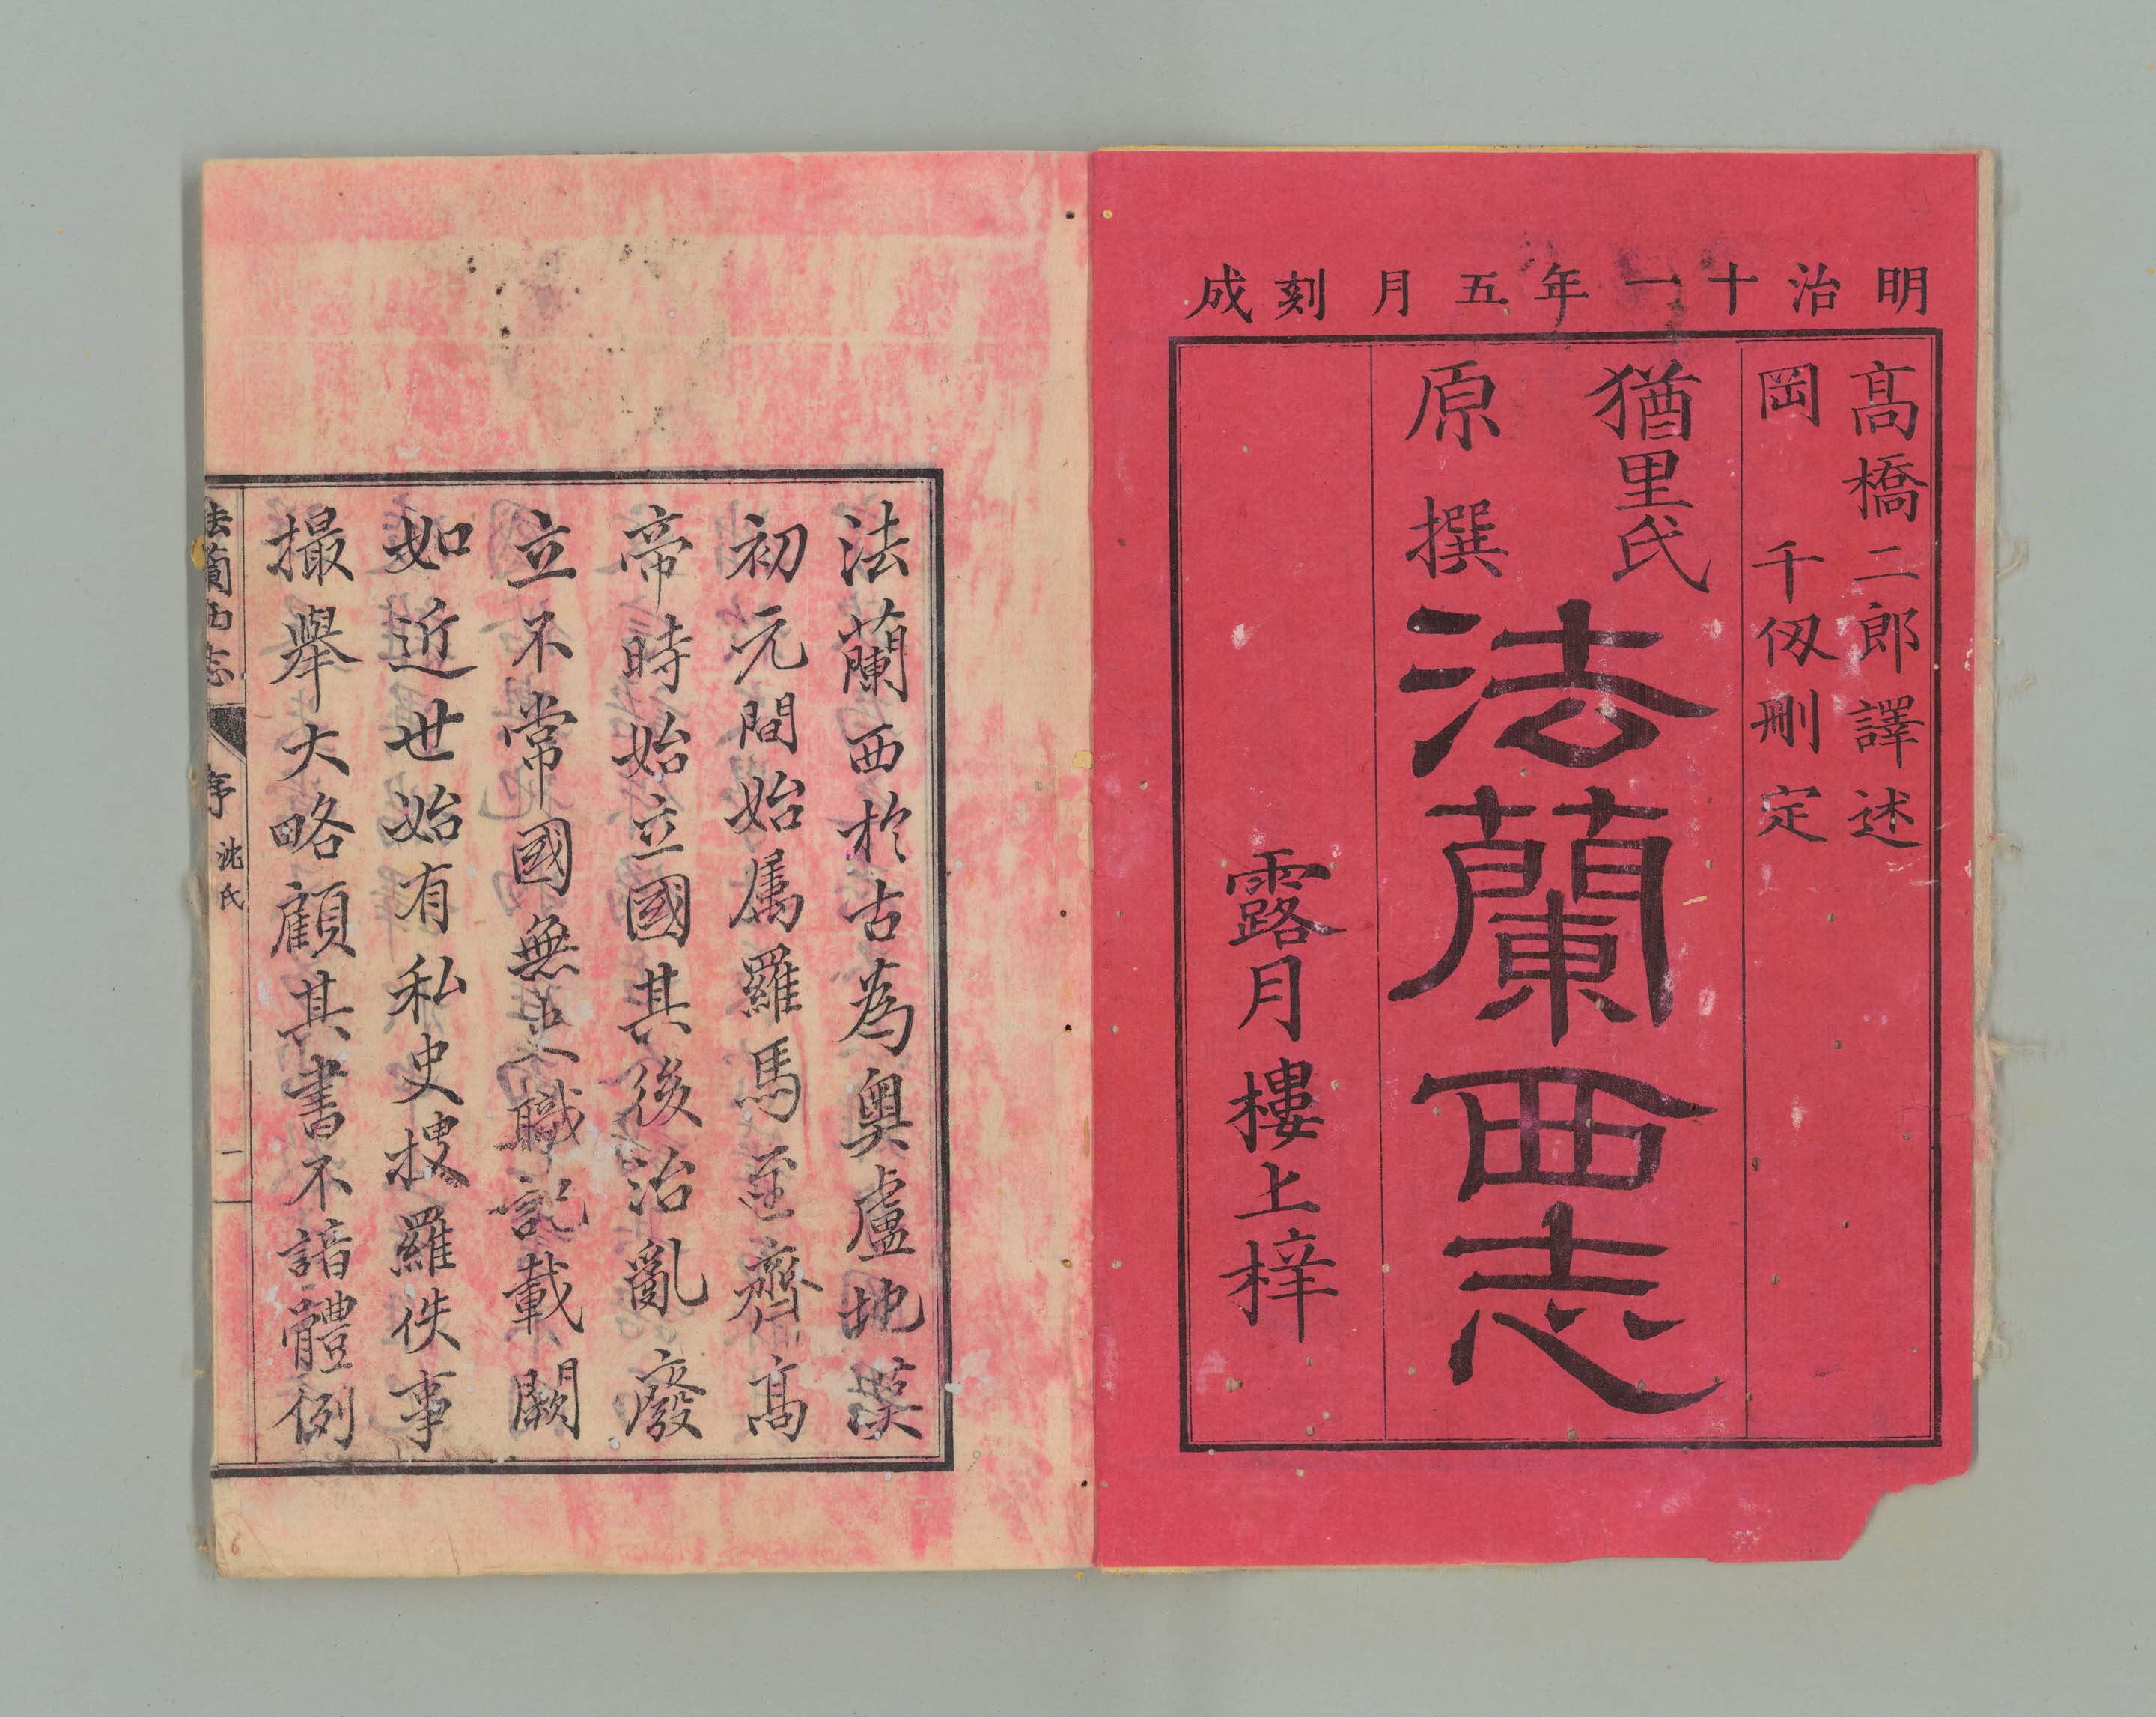 明治十一年五月刻成
高橋二郎譯述
岡千仭刪定
猶里氏
原撰
法蘭西志
露月樓上梓
法蘭西於古為奧盧地漢
初元間始属羅馬至齊高
帝時始立國其後治亂廢
立不常國無史職記載闕
如近世始有私史搜羅佚事
撮舉大略顧其書不諳體例
法蘭西志 序 沈氏 一
6